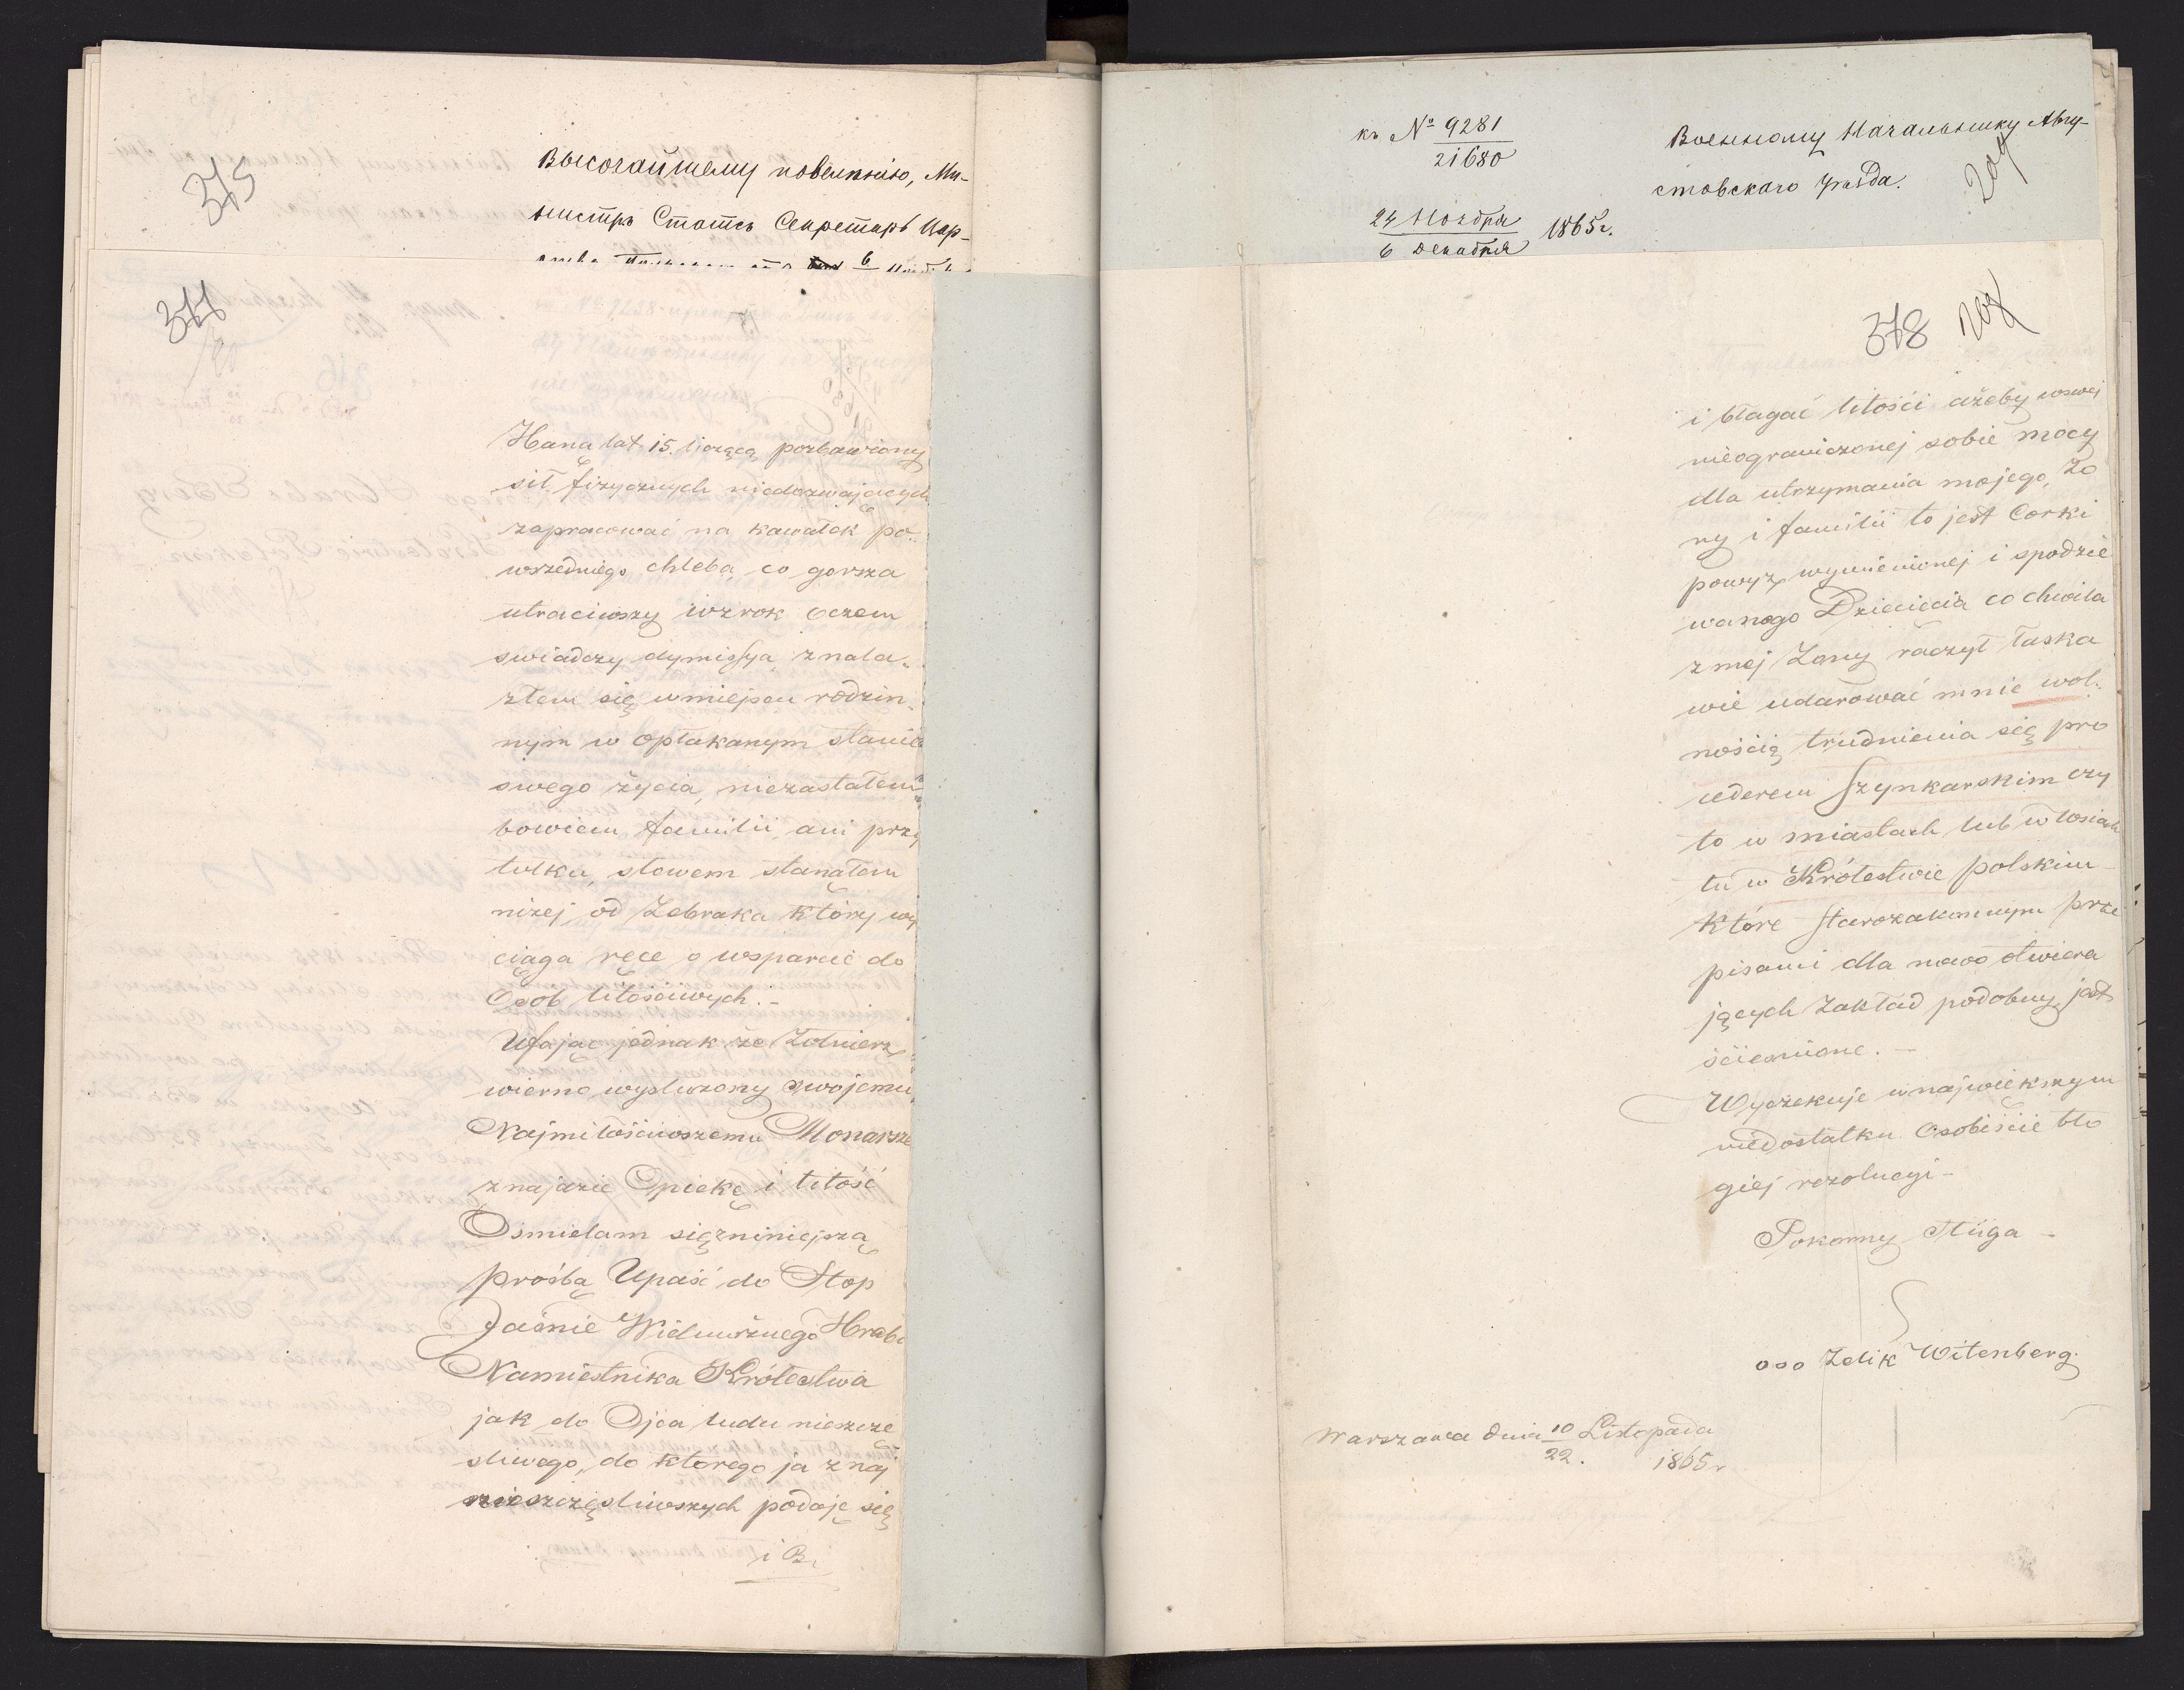 375
Высочайшему повелѣнію, Ми-
нистръ Статсъ Секретарь Цар-
377
Hana lat 15. licząca, pozbawiony
sił fizycznych niedozwajających
zapracować na kawałek po-
wszedniego chleba, co gorsza
utraciwszy wzrok oczem
swiadczy dymissya, znala-
złem się w miejscu rodzin-
nym w opłakanym stanie
swego życia, niezastałem
bowiem familii, ani przy
tułku, słowem stanąłem
niżej od Zebraka który wy
ciąga ręce o wsparcie do
Osób litościwych.-
Ufając jednak że Żołnierz
wierno wysłużony swojemu
Najmiłościwszemu Monarsze
znajdzie Opiekę i litość
Osmielam się niniejszą
prośbą Upaść do Stop
Jaśnie Wielmożnego Hrabi
Namiestnika Królestwa
jak do Ojca ludu nieszczę
sliwego, do ktorego ja z naj
nieszczęsliwszych podaję się
i B
къ № 9281
21680
24 Ноября
6 Декабря 1865 г.
Военному Начальнику Авгу-
стовскаго уѣзда.
378
i błagać litości ażeby wswej
nieograniczonej sobie mocy
dla utrzymania mojego, Żo
ny i familii to jest Corki
powyż wymienionej i spodzie
wanego Dziecięcia co chwila
z mej Żony raczył łaska
wie udarować mnie wol-
nością trudnienia się pro
cederem Szynkarskim czy
to w miastach lub w wsiach
tu w Królestwie polskim
które Starozakonnym prze
pisami dla nowo otwiera
jących Zakład podobny jest
ścieśnione.-
Wyczekuje w największym
niedostatku Osobiście bło
giej rezolucyi-
Pokorny Sługa-
ooo Zelik Witenberg.
Warszawa dnia 10 Listopada
22. 1865 r